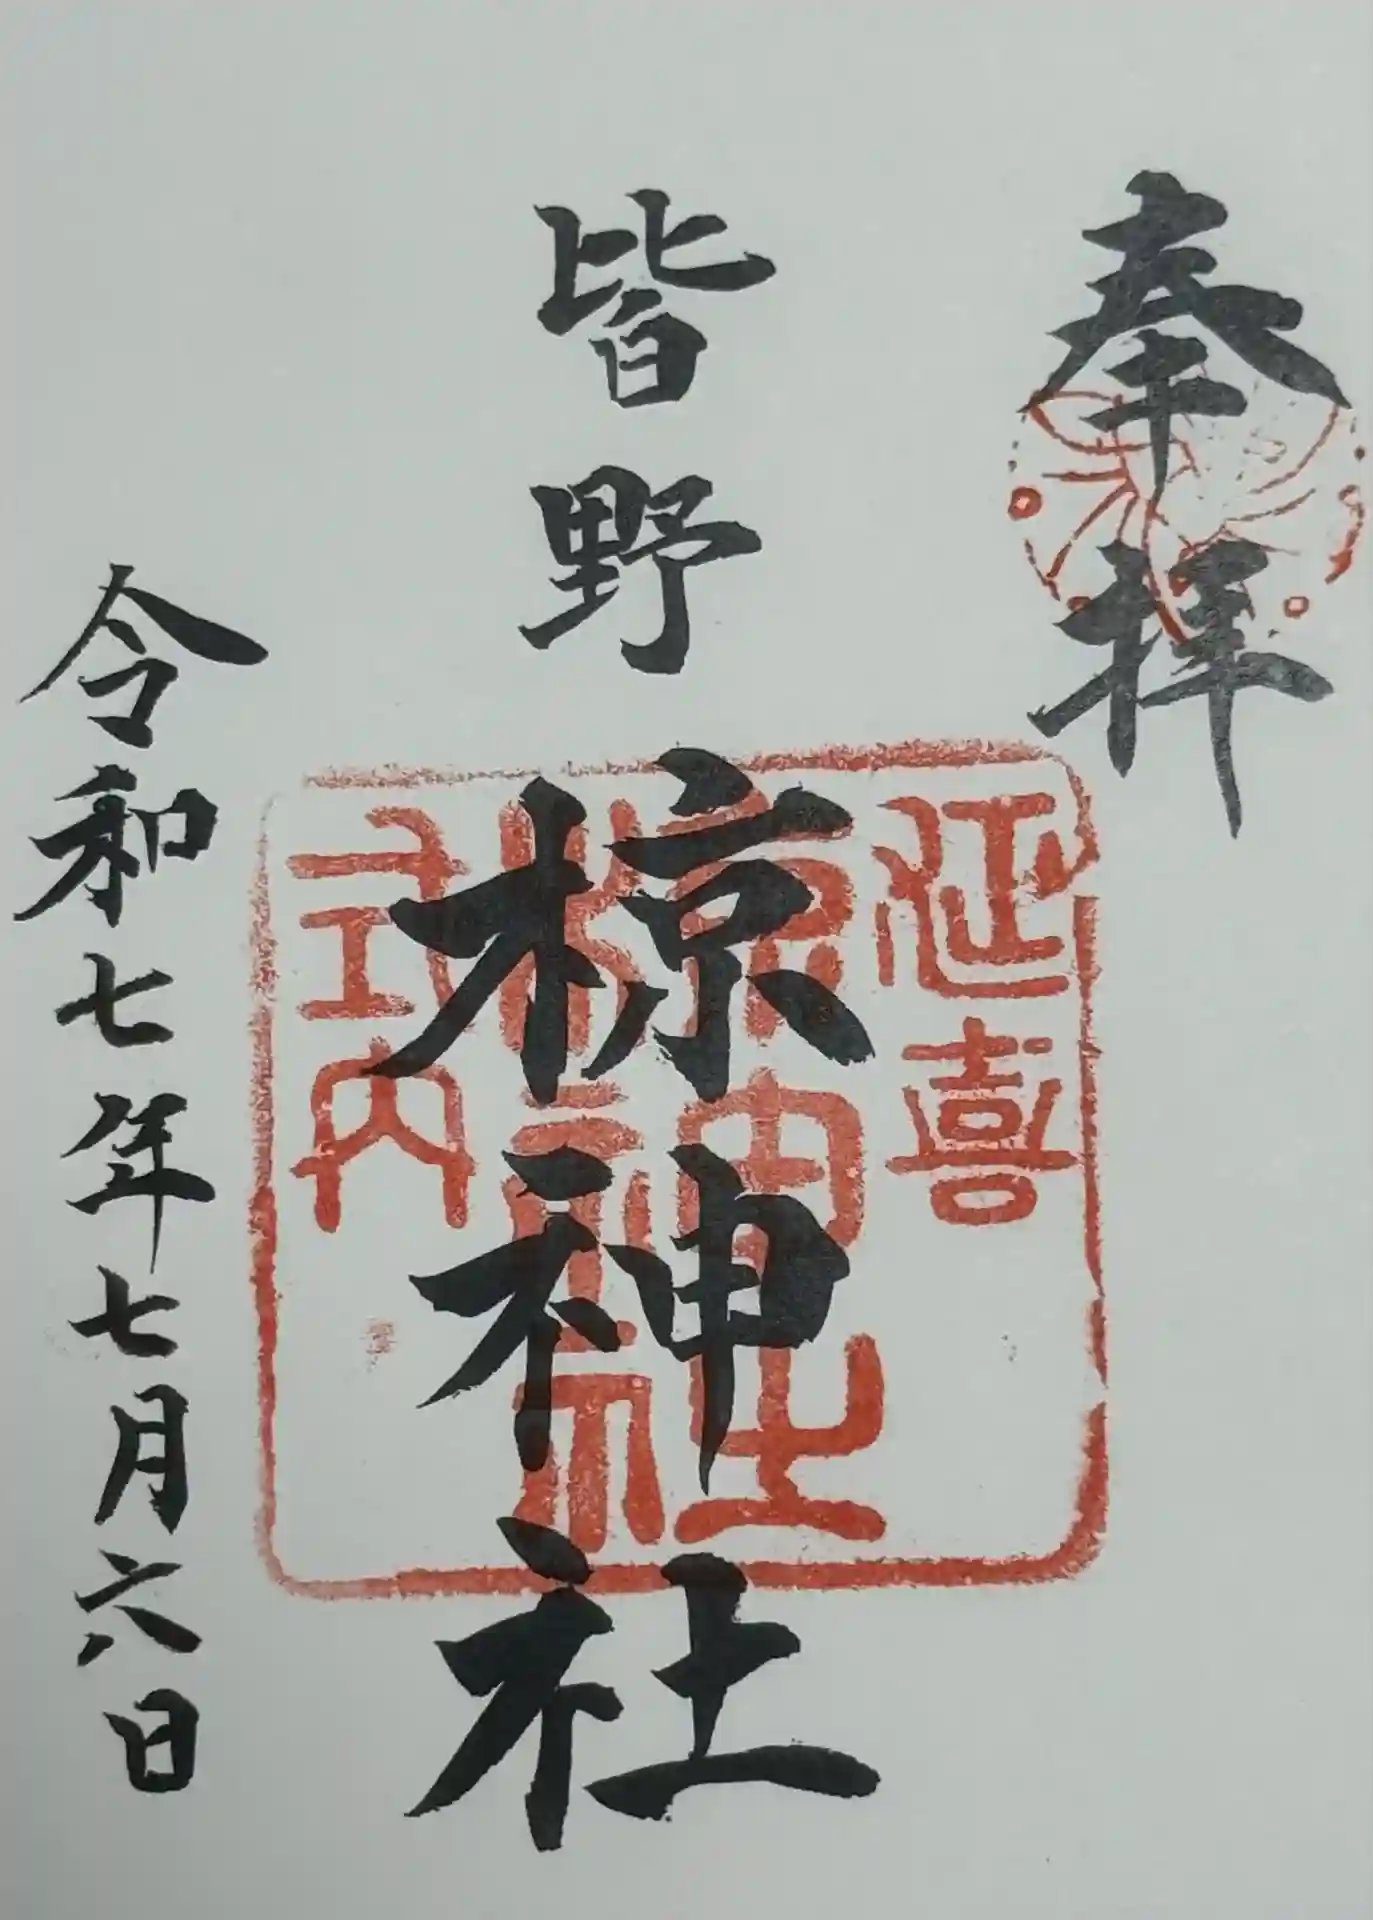 奉拝
皆野
椋神社
延喜
椋神社
式内
令和七年七月六日